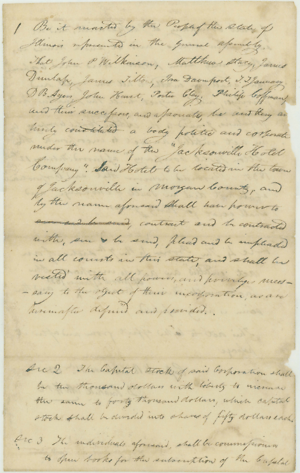 1 Be it enacted by the People of the State of
Illinois represented in the General Assembly
That John P Wilkinson, Matthew Stacy, James
Dunlap, James Tilton, Ira Davenport, I January
D B Ayers John Hurst, Porter Clay, Philip Coffman
and their successors and associates, be and they are
hereby constituted a body politic and corporate
under the name of the "Jacksonville Hotel
Company". Said Hotel to be located in the town
of Jacksonville in Morgan County, and
by the name aforesaid shall have power to
contract and be contracted
with, sue & be sued, plead and be impleaded
in all courts in this state, and shall be
vested with all powers, and privileges neces-
-sary to the object of their incorporation, as are
hereinafter defined and
Sec 2 The Capital stock of said Corporation shall
be ten thousand dollars with liberty to increase
the same to forty thousand dollars, which capital
stock shall be divided into shares of fifty dollars each.
Sec 3 The individuals aforesaid, shall be commissioners
to open books for the subscription of the Capital